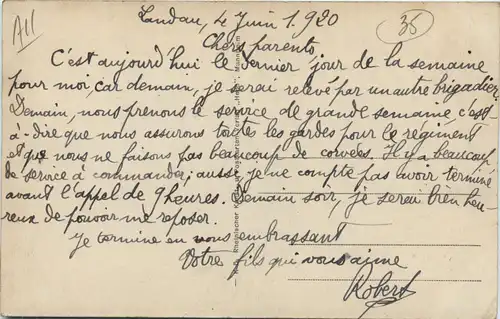 All
Landau, 4 Juin 1920
35
Chers parents,
C'est aujourd'hui le dernier jour de la semaine
pour moi, car demain, je serai relevé par un autre brigadier.
Demain, nous prenons le service de grande semaine, c'est-
à-dire que nous assurons toutes les gardes pour le régiment
et que nous ne faisons pas beaucoup de corvées. Il y a beaucoup
de service à commander; aussi je ne compte pas avoir terminé
avant l'appel de 9 heures. Demain soir, je serai bien heu-
reux de pouvoir me reposer.
Je termine en vous embrassant
Votre fils qui vous aime
Robert